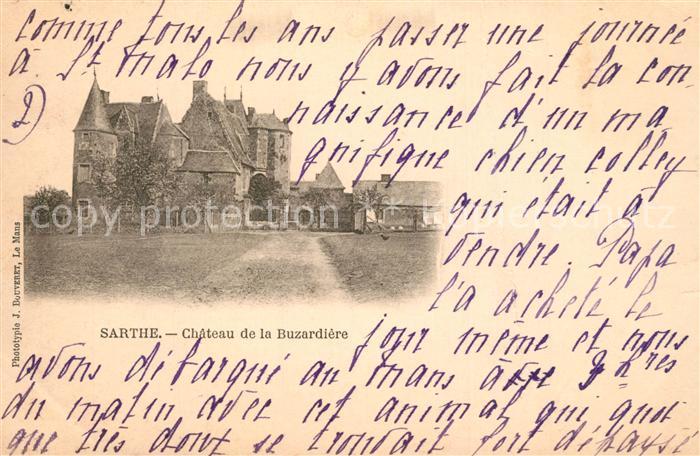 comme tous les ans passer une journée
à St malo nous y avons fait la con
2)
naissance d'un ma
gnifique chien colley
qui était à
vendre. Papa
l'a acheté le
jour même et nous
avons débarqué au mans à 3 hres
du matin avec cet animal qui quoi
que très doux se trouvait fort dépaysé
SARTHE. — Château de la Buzardière
Phototypie J. BOUVERET, LE MANS
copyright-kinderscherz